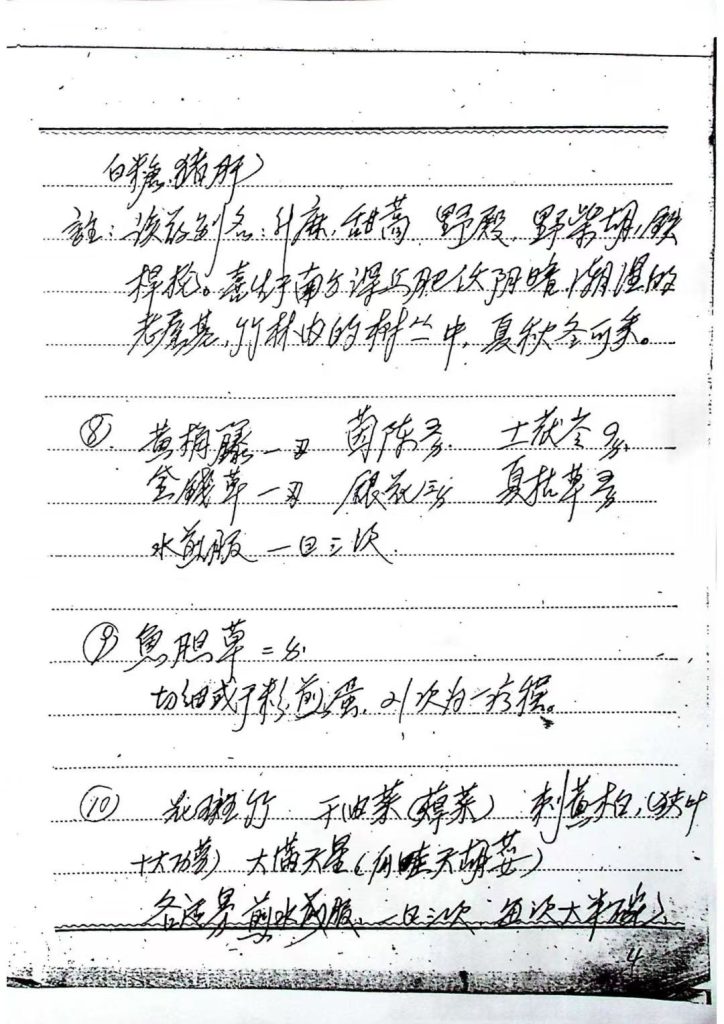 白糖、猪肝）
註：该药别名：升麻、甜蒿、野殿、野柴胡、铁
桿抢。喜生于南方深山肥伏阴暗、潮湿的
老屋基，竹林内的树丛中，夏秋冬可采。
⑧ 黄桷藤一两 茵陈 土茯苓
金錢草一两 銀花三分 夏枯草
水煎服 一日三次.
⑨ 魚胆草=分.
切细或干粉煎蛋，21次为一疗程。
⑩ 花斑竹 干油菜(蔊菜) 刺黄柏，(狭叶
十大功劳) 大满天星(天胡荽)
各适量煎水服，一日三次 每次大半碗）
4